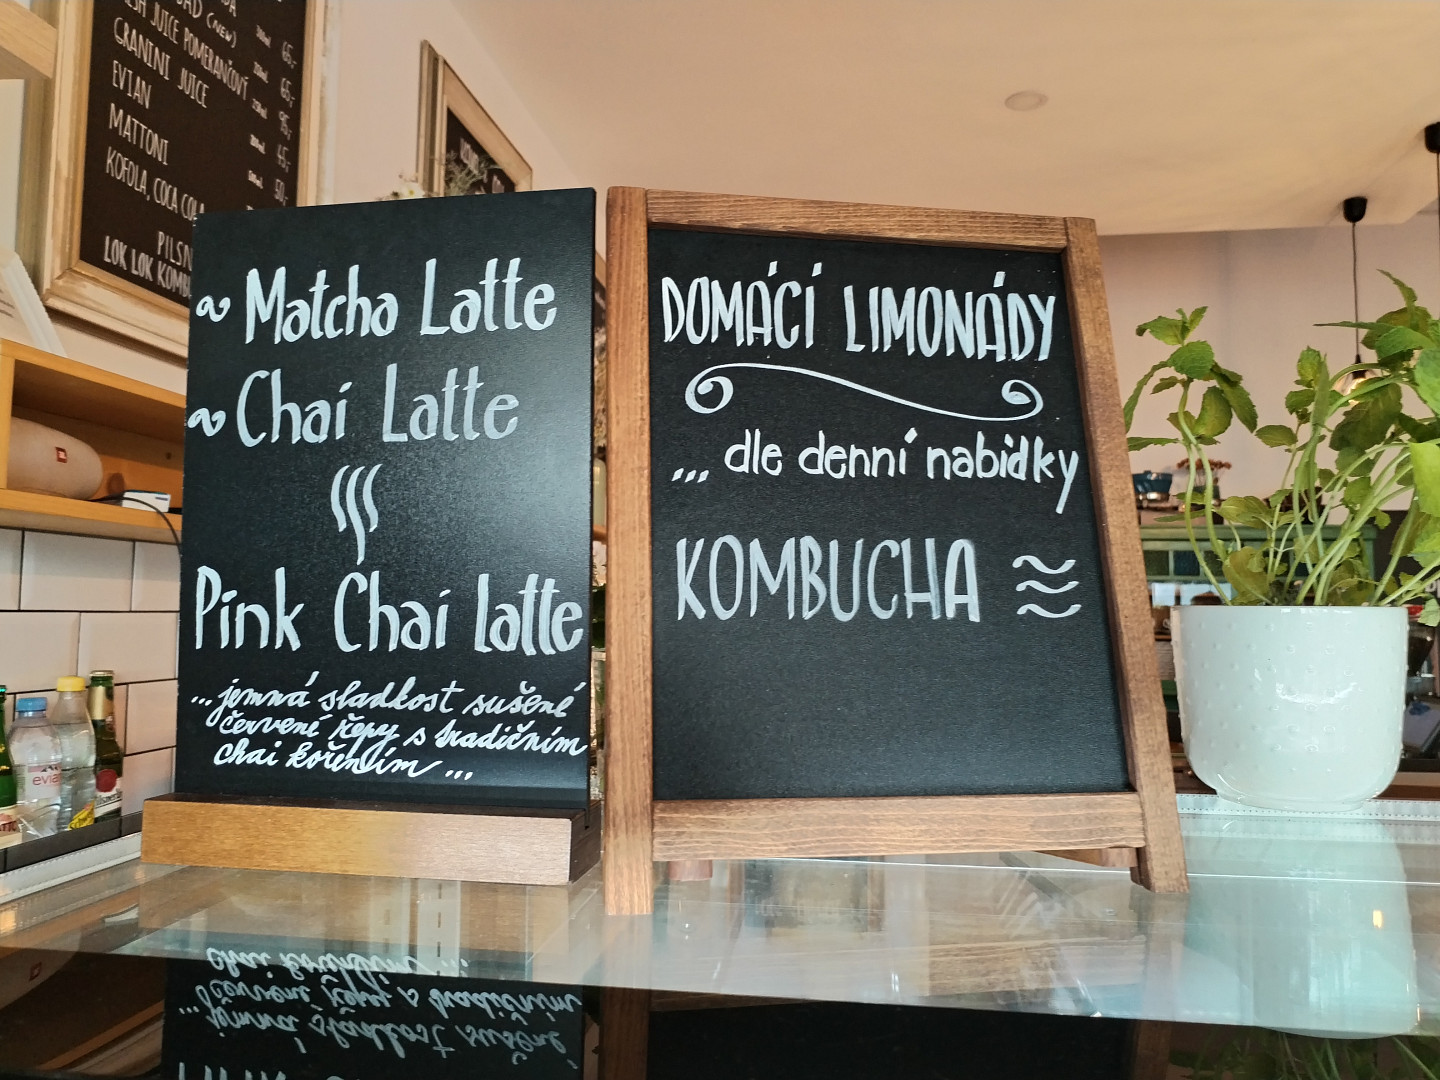 (NEW)
JUICE POMERANČOVÝ
GRANINI JUICE
EVIAN
MATTONI
KOFOLA, COCA COLA
PILSN
LOK LOK KOMBU
65,-
65,-
95,-
45,-
50,-
~ Matcha Latte
~ Chai Latte
Pink Chai latte
...jemná sladkost sušené
červené řepy s tradičním
chai kořením ...
DOMÁCÍ LIMONÁDY
... dle denní nabídky
KOMBUCHA
evian
JBL